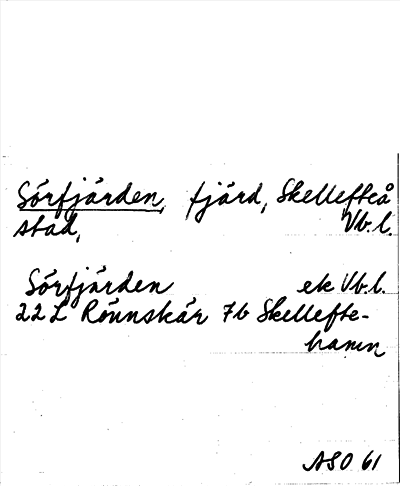 Sörfjärden, fjärd, Skellefteå
stad, Vb.l.
Sörfjärden ek Vb.l.
22 L Rönnskär 7b Skellefte-
hamn
ASO 61